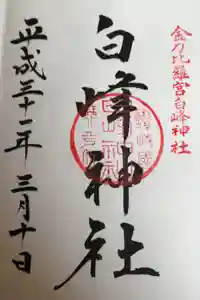 金刀比羅宮白峰神社
白峰神社
平成三十一年三月十日